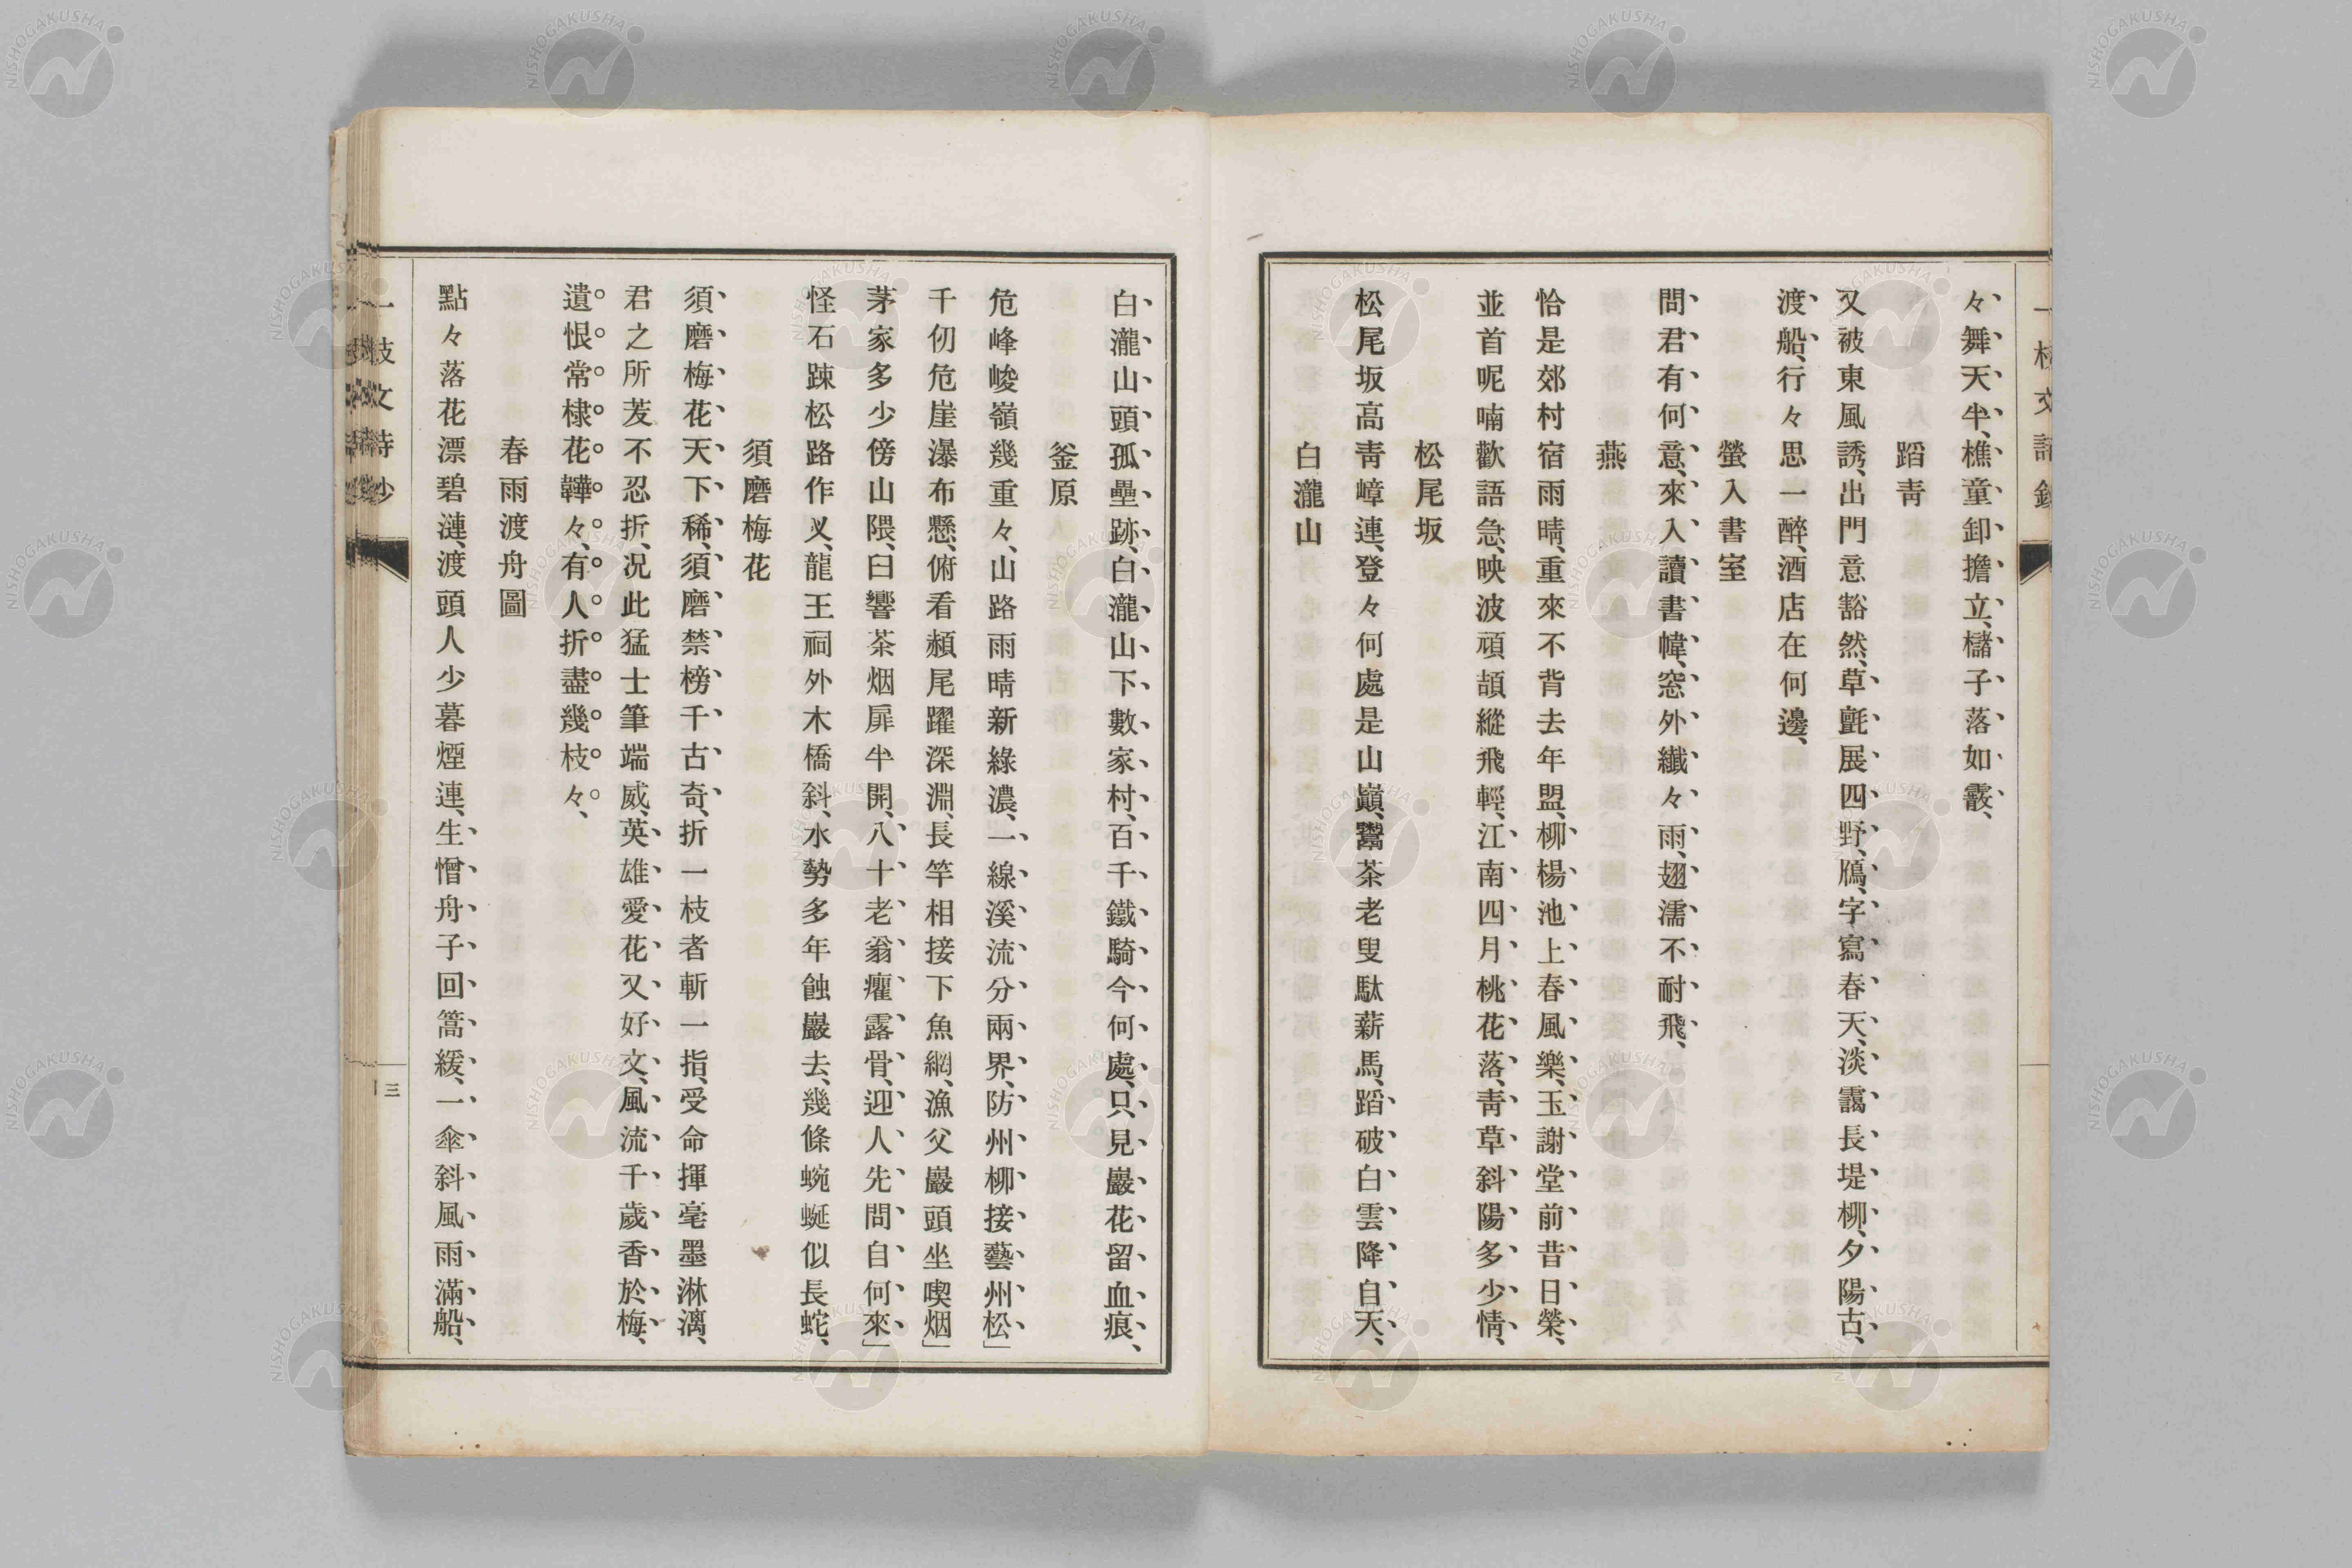 々舞天半、樵童卸擔立、櫧子落如霰、
蹈靑
又被東風誘、出門意豁然、草氈展四野、鴈字寫春天、淡靄長堤柳、夕陽古
渡船、行々思一醉、酒店在何邊、
螢入書室
問君有何意、來入讀書幃、窓外纎々雨、翅濡不耐飛、
燕
恰是郊村宿雨晴、重來不背去年盟、柳楊池上春風樂、玉謝堂前昔日榮、
並首呢喃歡語急、映波頏頡縱飛輕、江南四月桃花落、靑草斜陽多少情、
松尾坂
松尾坂高靑嶂連、登々何處是山巓、鬻茶老叟馱薪馬、蹈破白雲降自天、
白瀧山
白瀧山頭孤壘跡、白瀧山下數家村、百千鐵騎今何處、只見巖花留血痕、
釜原
危峰峻嶺幾重々、山路雨晴新綠濃、一線溪流分兩界、防州柳接藝州松」
千仞危崖瀑布懸、俯看頳尾躍深淵、長竿相接下魚網、漁父巖頭坐喫烟」
茅家多少傍山隈、臼響茶烟扉半開、八十老翁癯露骨、迎人先問自何來」
怪石踈松路作叉、龍王祠外木橋斜、水勢多年蝕巖去、幾條蜿蜒似長蛇、
須磨梅花
須磨梅花天下稀、須磨禁榜千古奇、折一枝者斬一指、受命揮毫墨淋漓、
君之所茇不忍折、況此猛士筆端威、英雄愛花又好文、風流千歲香於梅、
遺恨常棣花韡々、有人折盡幾枝々、
春雨渡舟圖
點々落花漂碧漣、渡頭人少暮煙連、生憎舟子回篙緩、一傘斜風雨滿船、
一枝文詩鈔
三
NISHOGAKUSHA